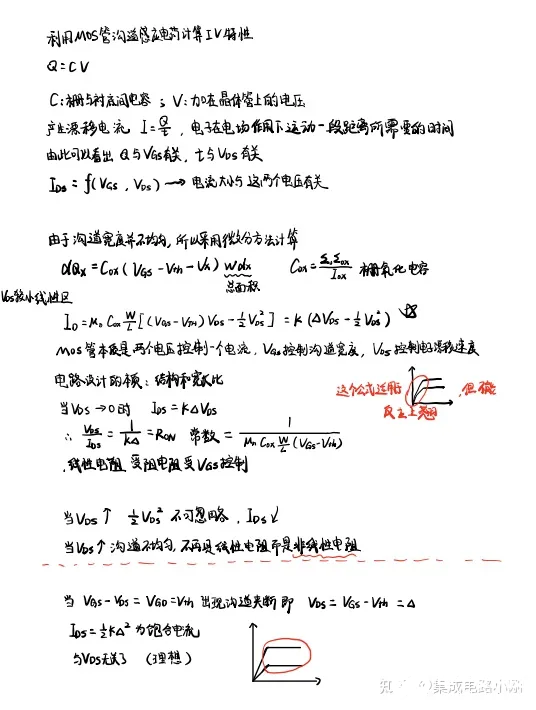 利用MOS管沟道感应电荷计算IV特性
Q = CV
C:栅与衬底间电容 ; V:加在晶体管上的电压
产生漂移电流 I = Q/t , 电子在电场作用下运动一段距离所需要的时间
由此可以看出 Q与VGS有关, t与VDS有关
IDS = f(VGS, VDS) → 电流大小与这两个电压有关
由于沟道宽度并不均匀,所以采用微分方法计算
dQx = Cox(VGS-Vth-Vx) Wdx Cox = 栅氧化电容
总面积
VDS较小线性区
ID = μn Cox W/L [(VGS-VTH)VDS - 1/2 VDS²] = K(ΔVDS - 1/2 VDS²)
MOS管本质是两个电压控制一个电流, VGS控制沟道宽度, VDS控制电子漂移速度
电路设计的本质:结构和宽长比
这个公式适用 , 但
当VDS → 0时 IDS = KΔVDS
∴ VDS/IDS = 1/KΔ = RON 常数 = 1/(μn Cox W/L (VGS-Vth))
线性电阻 受阻电阻受VGS控制
当VDS↑ 1/2 VDS² 不可忽略, IDS↓
当VDS↑ 沟道不均匀,不再是线性电阻而是非线性电阻
当 VGS-VDS = VGD = Vth 出现沟道夹断 即 VDS = VGS-Vth = Δ
IDS = 1/2 KΔ² 为饱和电流
与VDS无关了 (理想)
知乎 @集成电路小